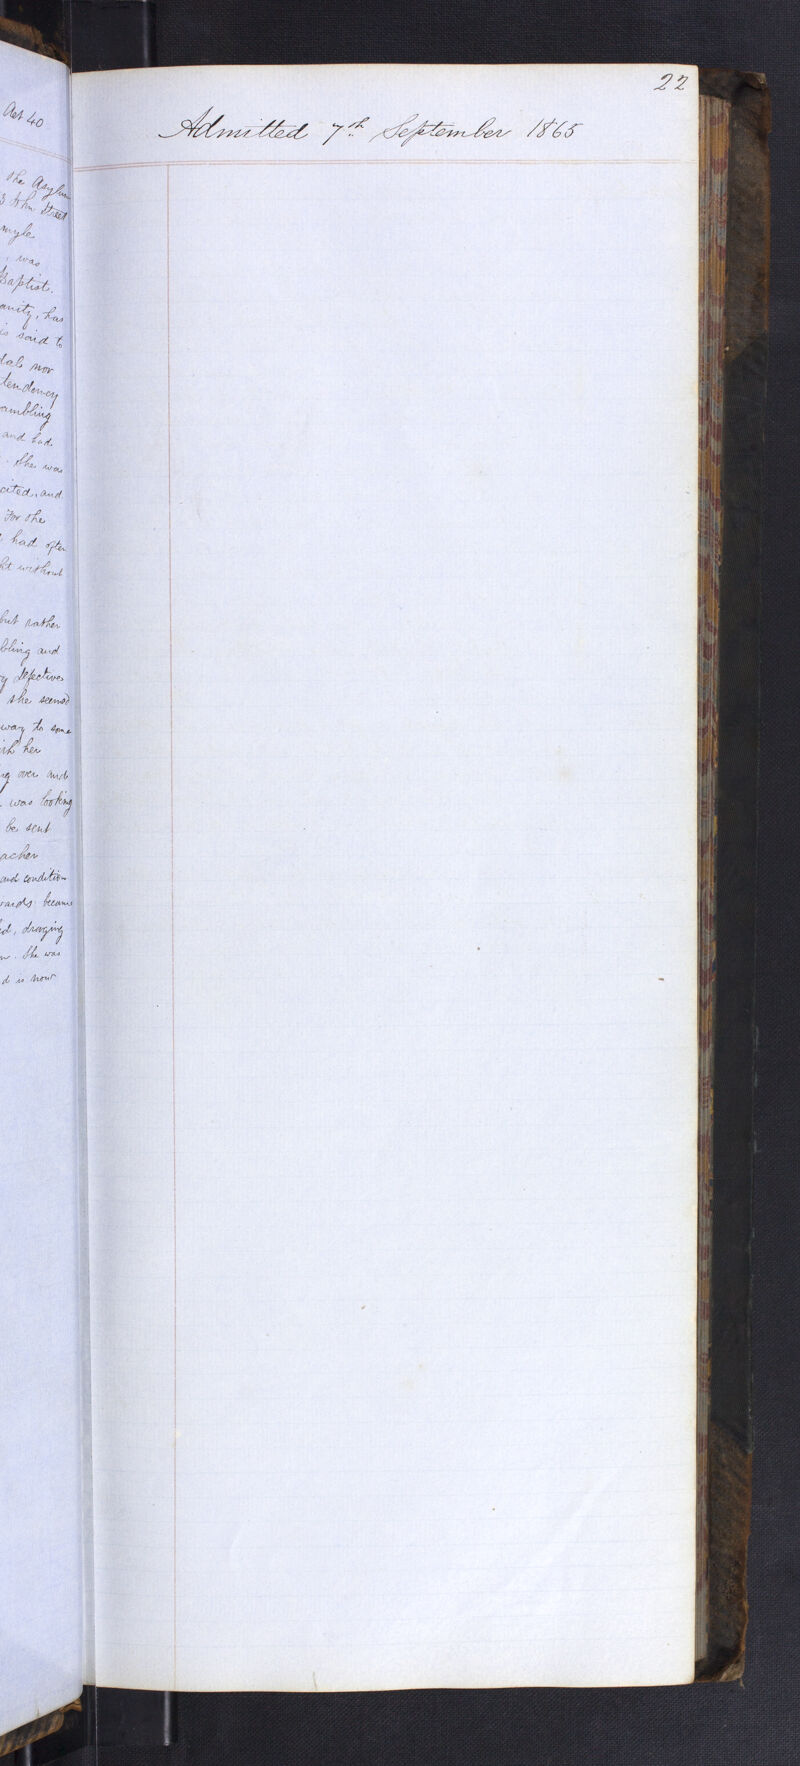 Aet 40
the Asylum
3 John Street
myle
, was
Baptist.
anity, has
is said to
dal nor
tendency
ambling
and had
. She was
cited, and
For the
had often
ht without
but rather
bling and
defective
she seemed
way to some
ith her
over and
was looking
be sent
acher
and condition
wards became
ed, dragging
n. She was
d is now
22
Admitted 7th September 1865